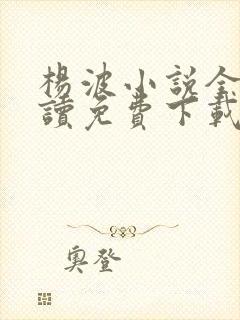 楊波小說全
讀免費下載
奥登